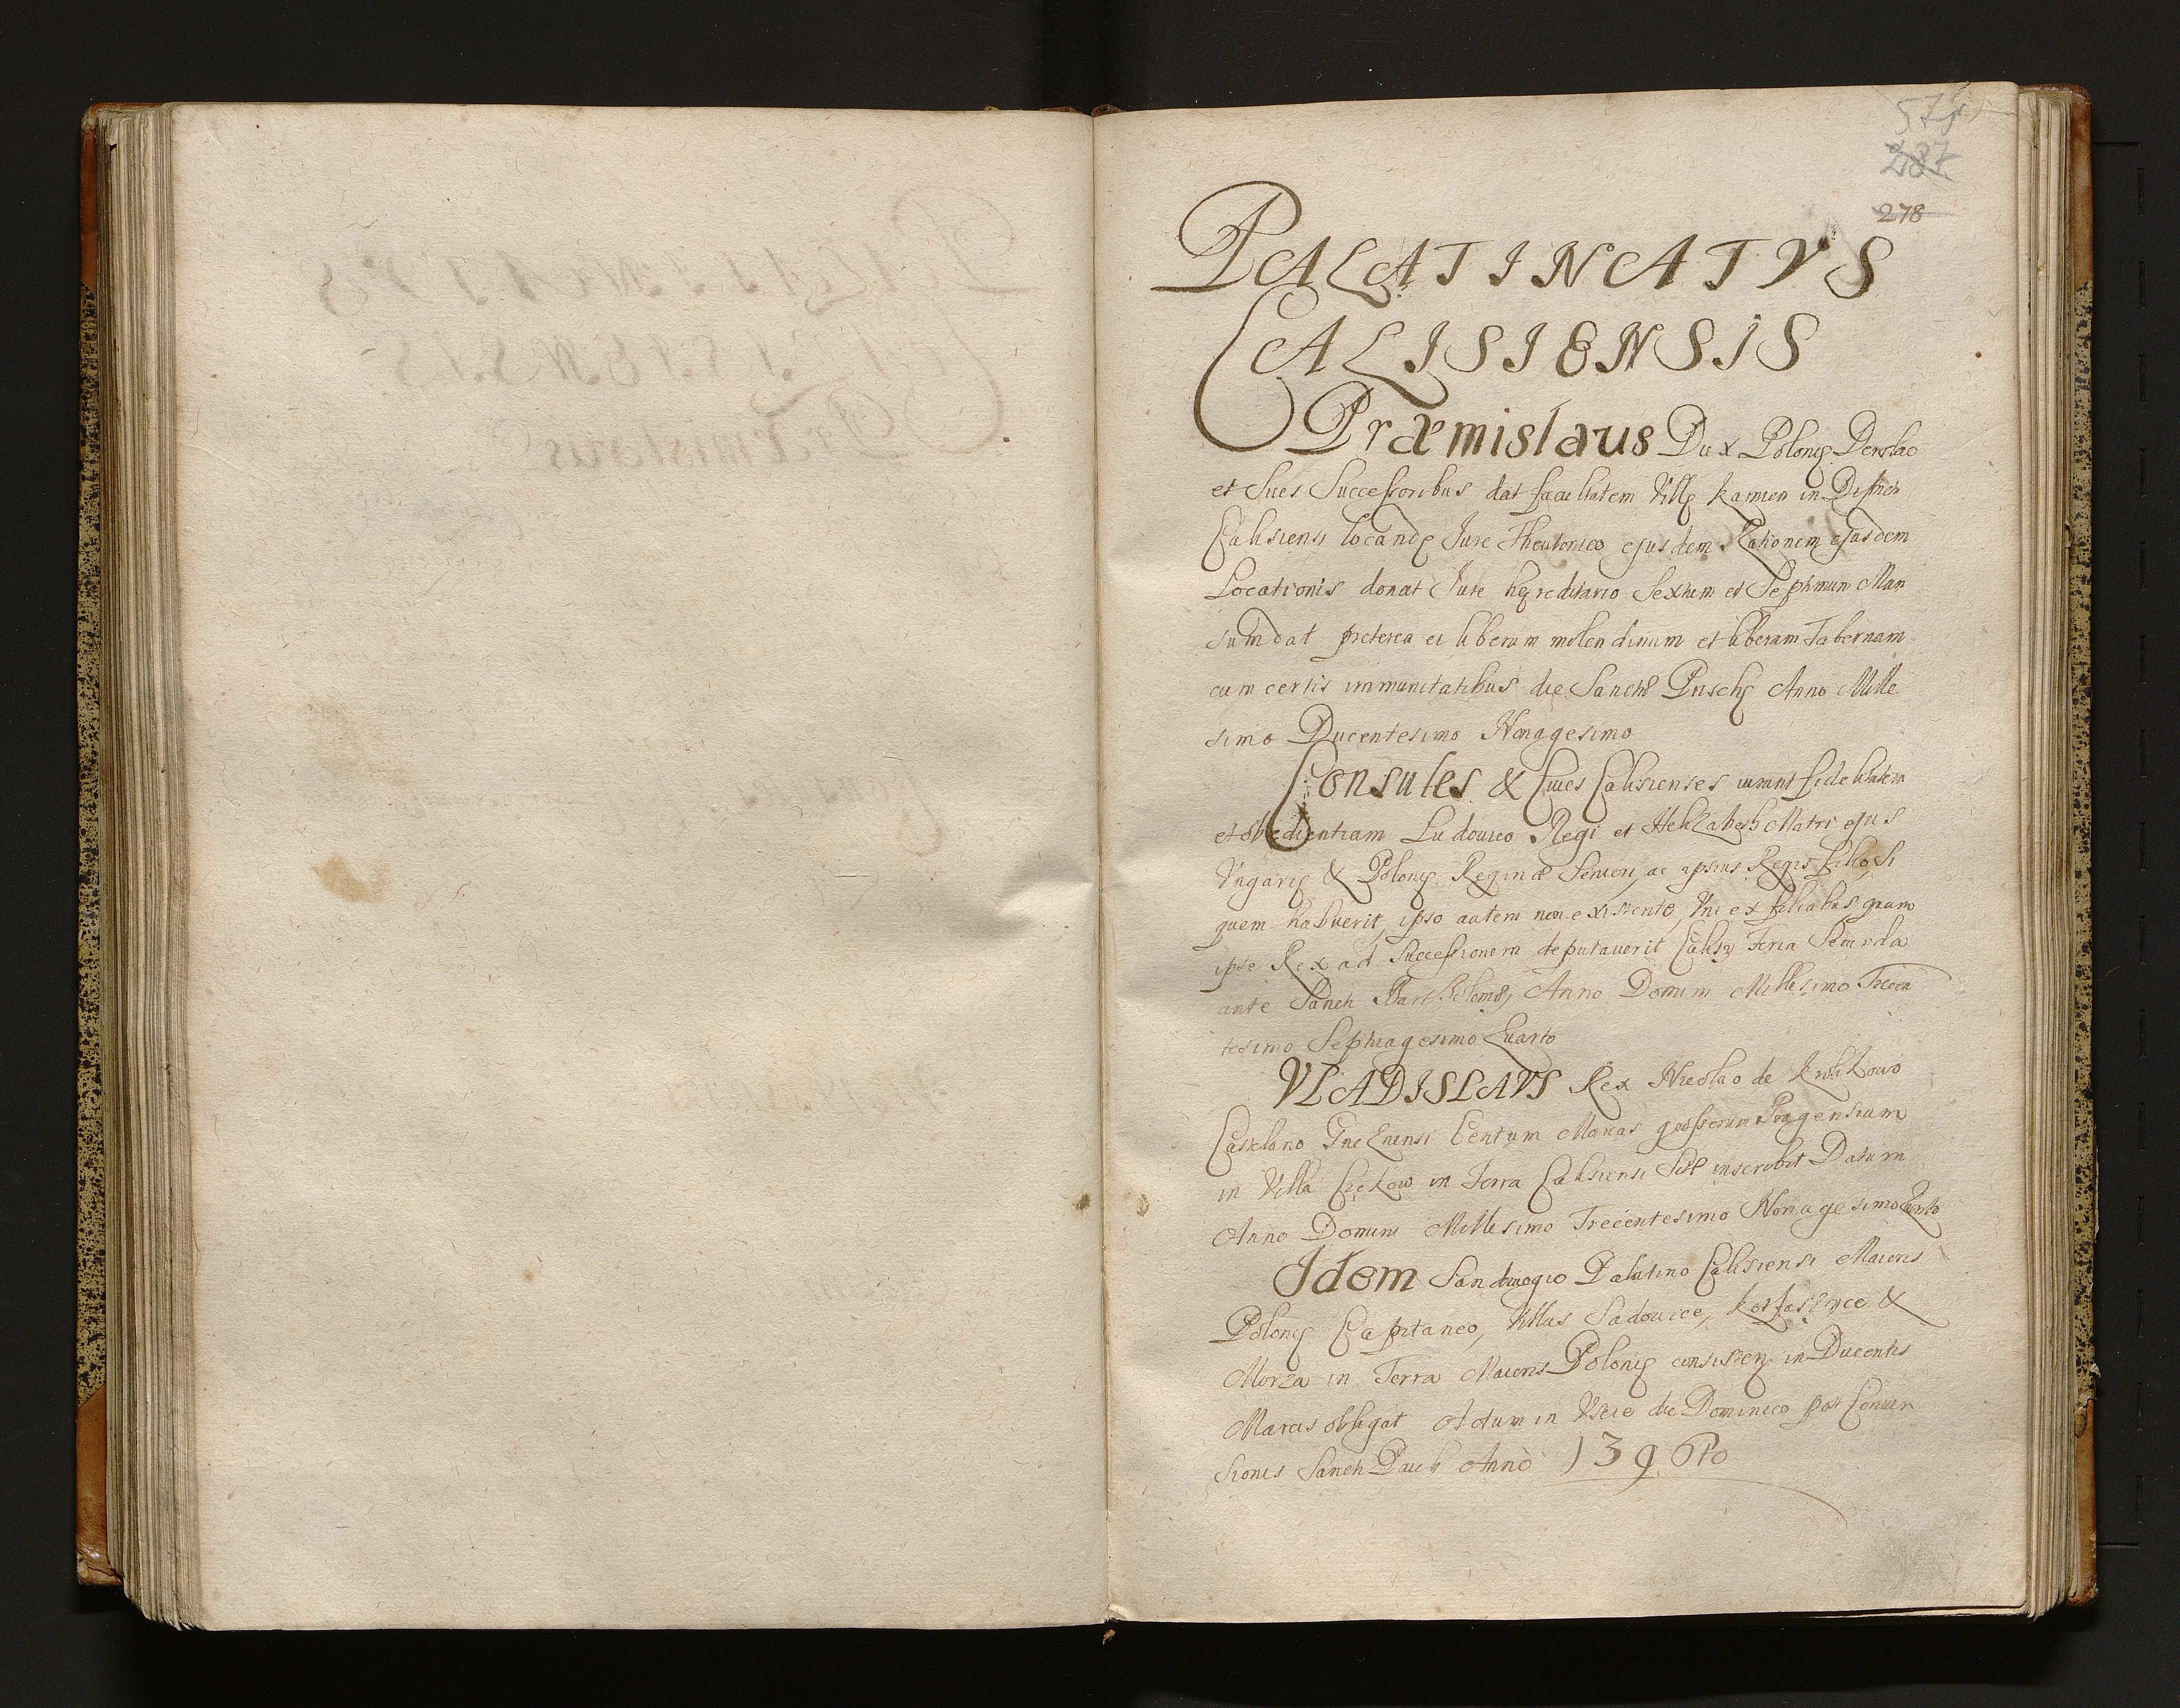 287
278
PALATINATVS
CALISIENSIS
Præmislaus Dux Polonię Derslao
et Suis Successoribus dat facultatem Villę Kamien in Districtu
Calisiensi locandę Iure Theutonico, ejusdem Rationem ejusdem
Locationis donat Iure hęreditario Sextum et Septimum Man
sum dat preterea ei liberum molendinum et liberam Tabernam
cum certis immunitatibus die Sanctę Priscę Anno Mille
simo Ducentesimo Nonagesimo
Consules & Cives Calisienses iurant fidelitatem
et obedientiam Ludouico Regi et Helizabeth Matri ejus
Vngarię & Polonię Reginæ Seniori, ac ipsius Regis filio, Si
quem habuerit, ipso autem non existente, Vni ex filiabus quam
ipse Rex ad Successionem deputauerit Calisij Feria Secunda
ante Sancti Bartholomei, Anno Domini Millesimo Trecen
tesimo Septuagesimo Quarto
VLADISLAVS Rex Nicolao de
Castelano Gneznensi Centum Marcas grossorum Pragensium
in Villa in Terra Calisiensi Sitę inscribit Datum
Anno Domini Millesimo Trecentesimo Nonagesimo
Idem Sandiuogio Palatino Calisiensi Maioris
Polonię Capitaneo, Villas Sadouice, &
Morza in Terra Maioris Polonię consisten in Ducentis
Marcis obligat Actum in Vscie die Dominico post Conuer
sionis Sancti Pauli Anno 1396to